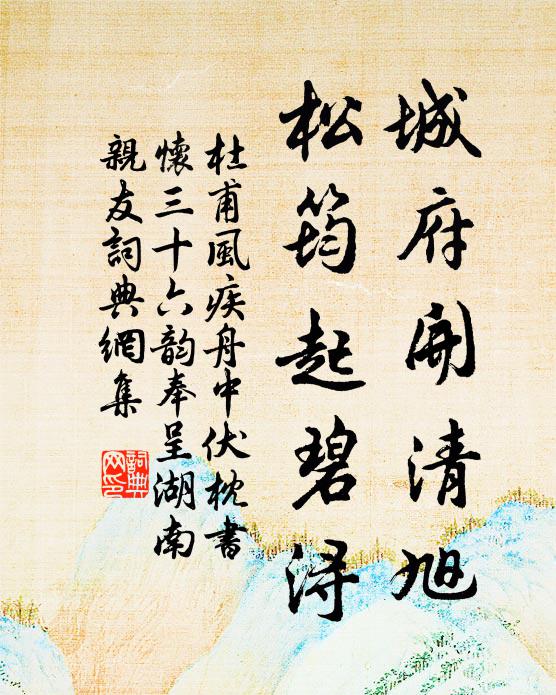 城府開清旭
松筠起碧浔
杜甫風疾舟中伏枕書
懷三十六韵奉呈湖南
親友詞典網集
詞典
网印